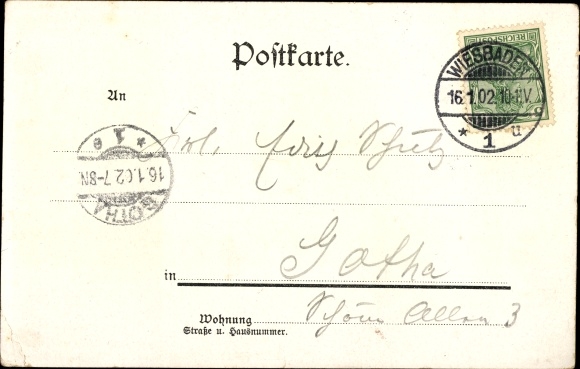 Postkarte.
REICHSPOST
WIESBADEN
16.1.02.10-11V.
* 1 u
An
Frl. Schulz
* 1 e
16.1.02.7-8N.
GOTHA
in Gotha
Wohnung Schöne Allee 3
Straße u. Hausnummer.